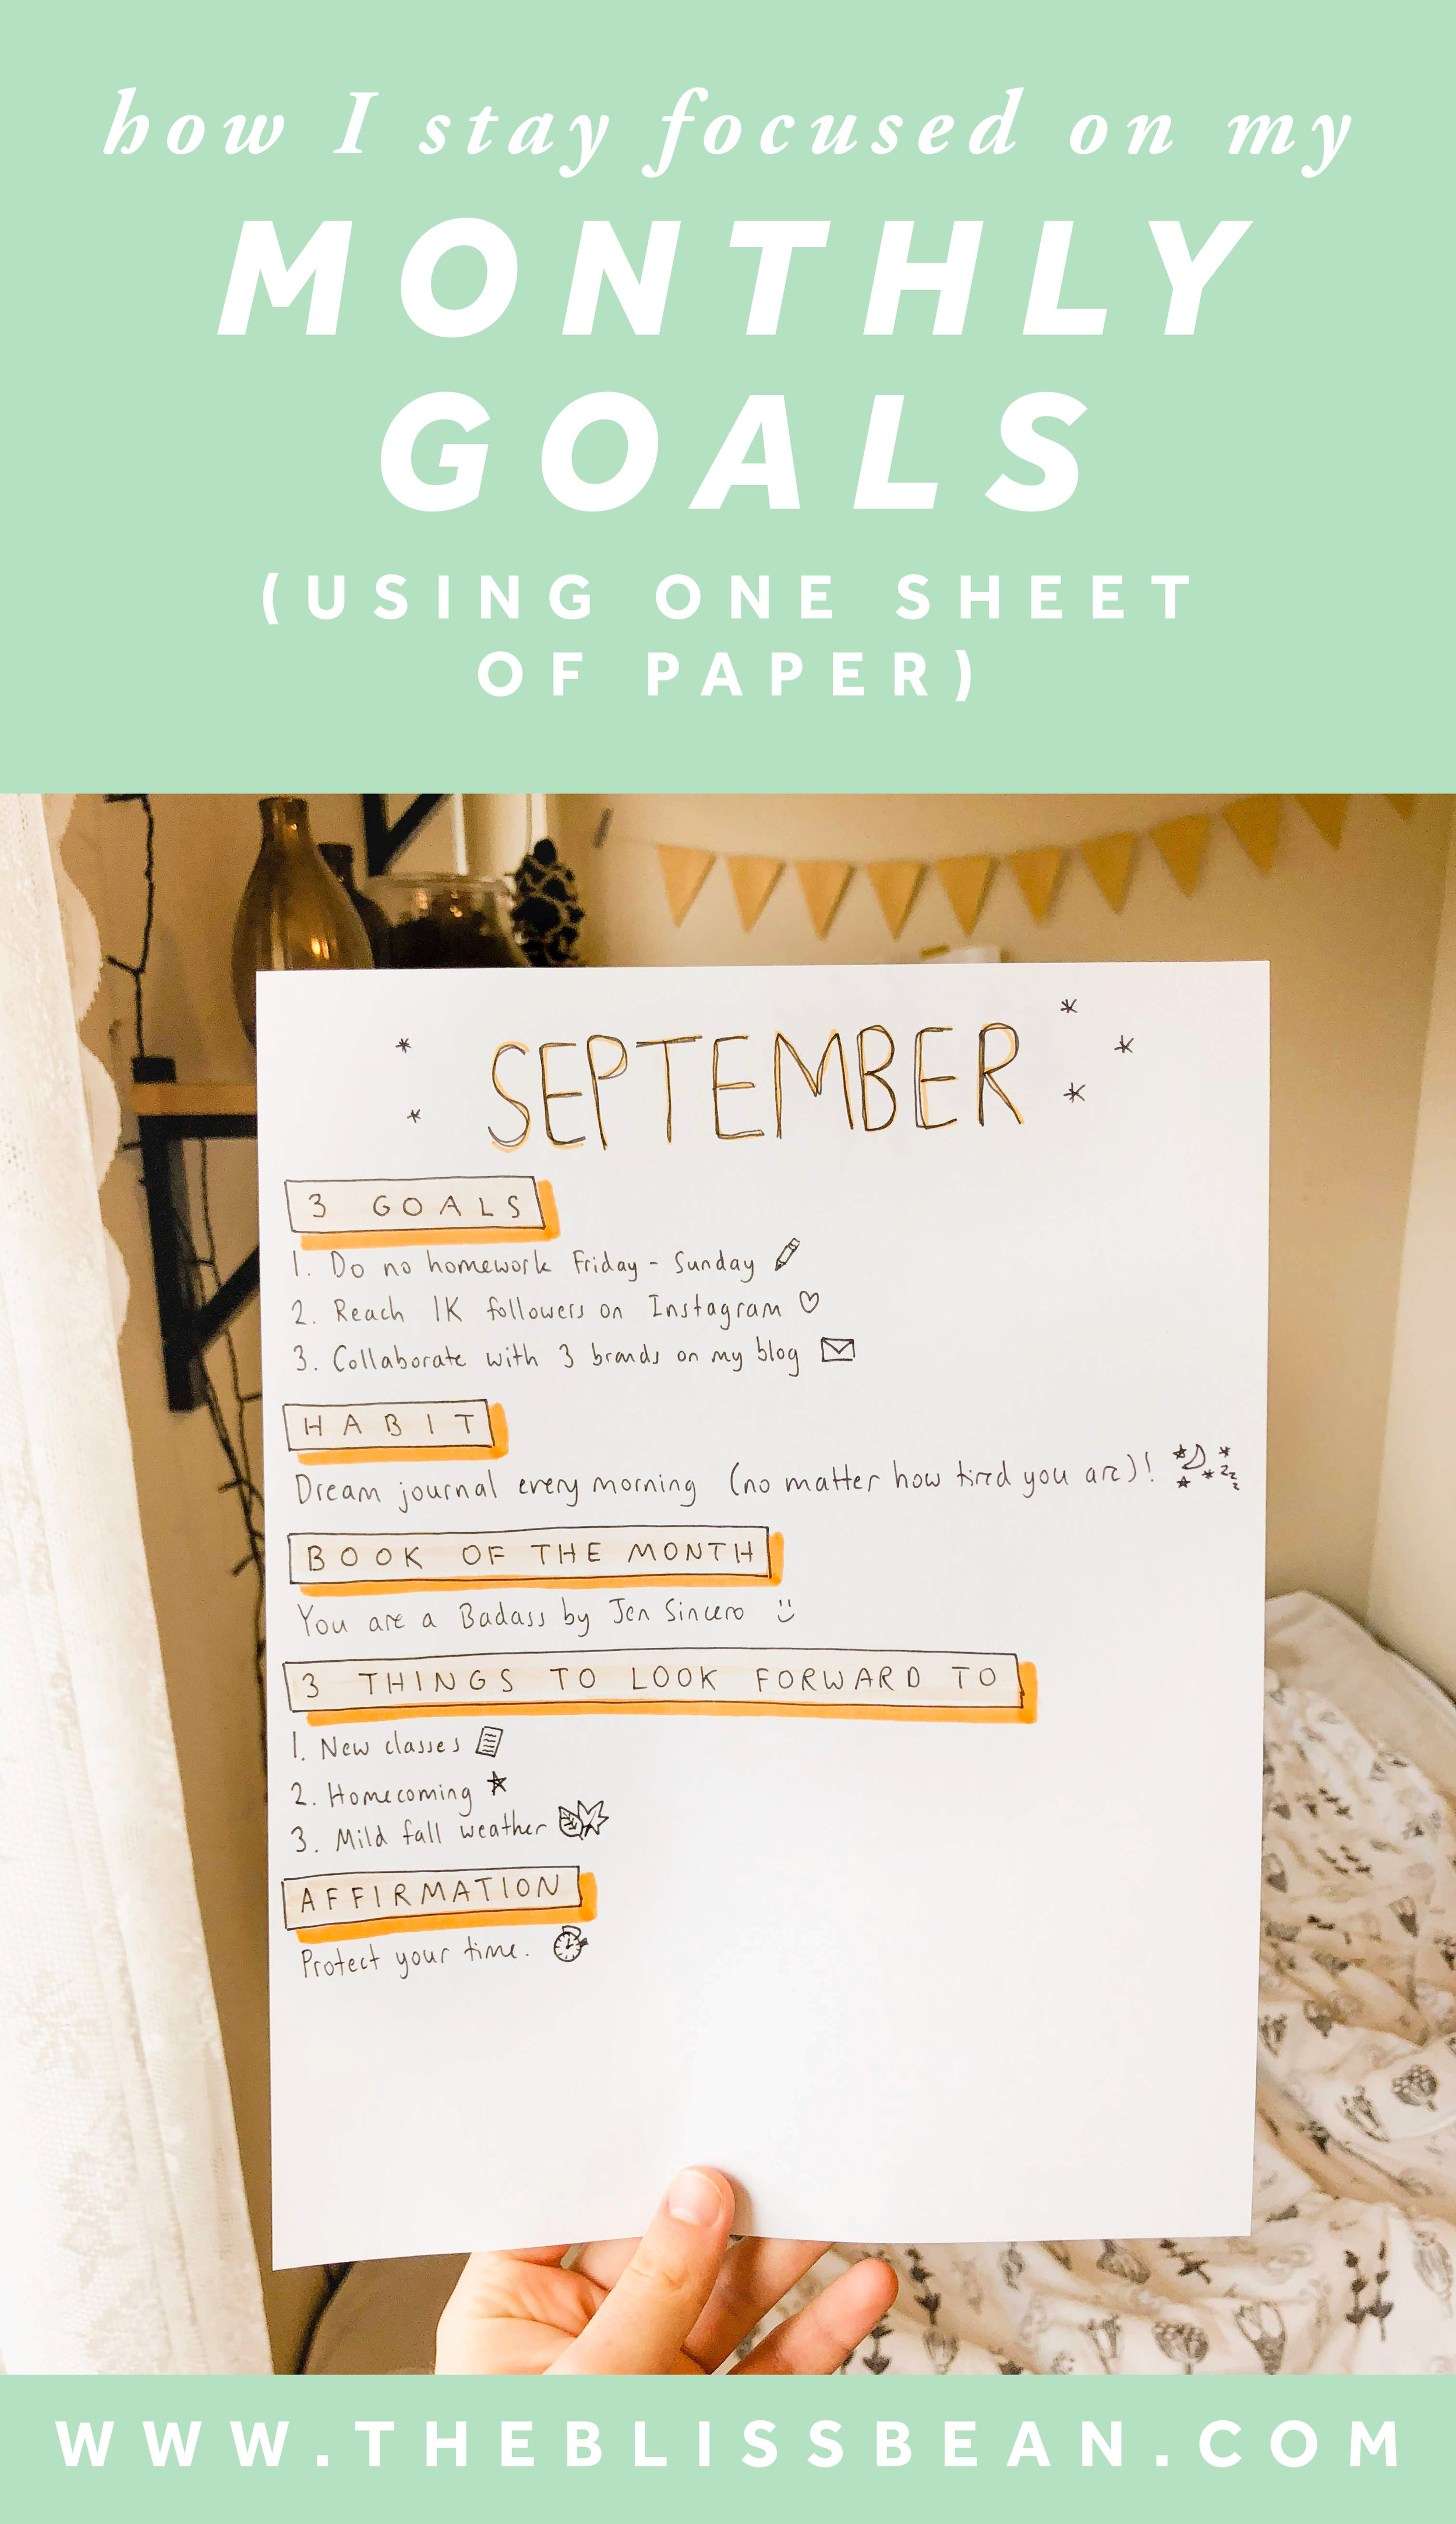 how I stay focused on my
MONTHLY
GOALS
(USING ONE SHEET
OF PAPER)
SEPTEMBER
3 GOALS
1. Do no homework Friday - Sunday
2. Reach 1K followers on Instagram
3. Collaborate with 3 brands on my blog
HABIT
Dream journal every morning (no matter how tired you are)!
BOOK OF THE MONTH
You are a Badass by Jen Sincero
3 THINGS TO LOOK FORWARD TO
1. New classes
2. Homecoming
3. Mild fall weather
AFFIRMATION
Protect your time.
WWW.THEBLISSBEAN.COM